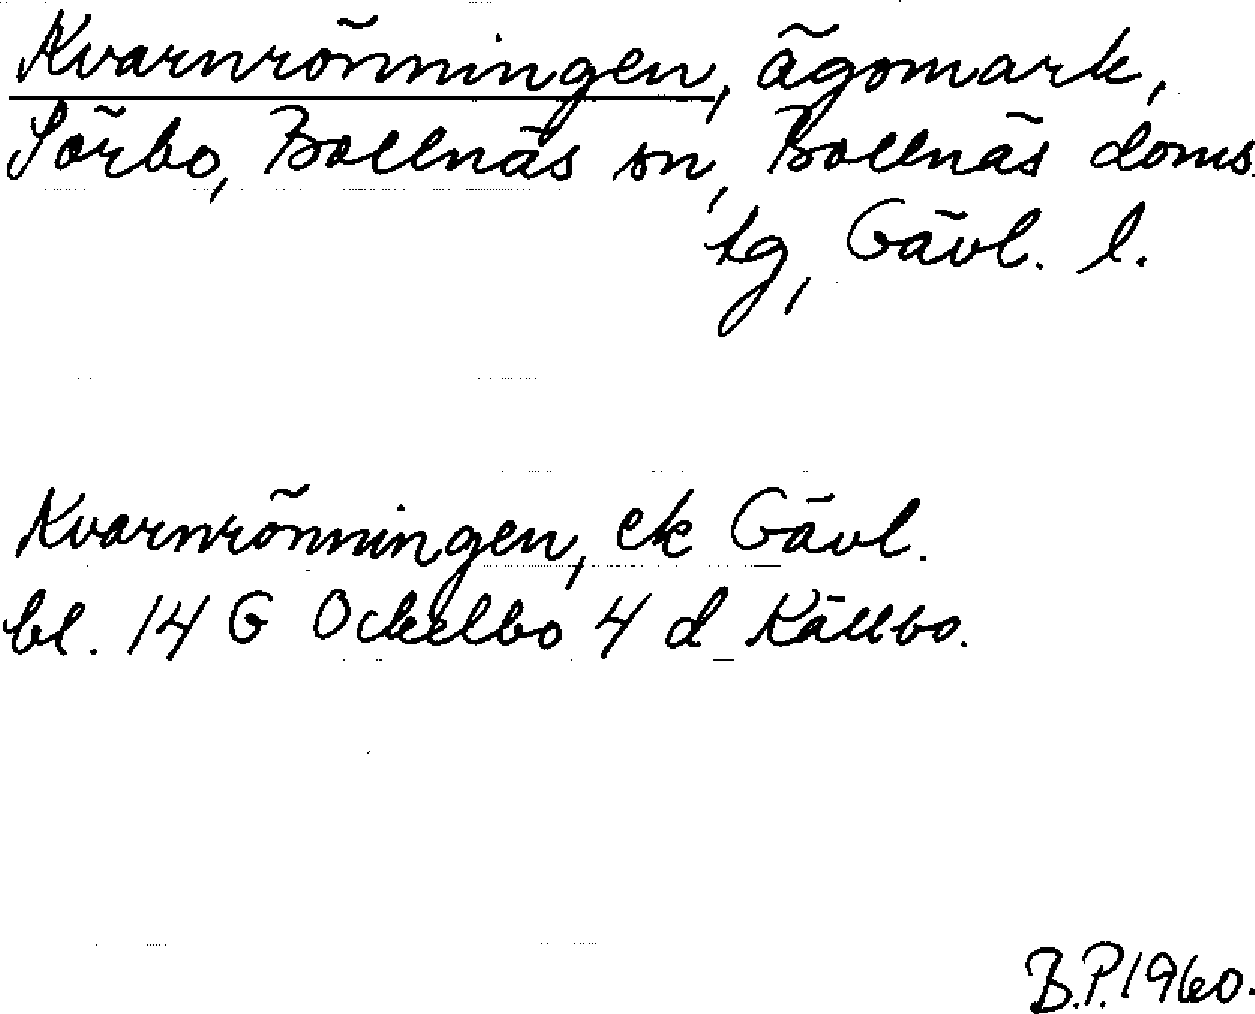 Kvarnrönningen, ägomark,
Sörbo, Bollnäs sn, Bollnäs doms.
tg, Gävl. l.
Kvarnrönningen, ek Gävl.
bl. 14 G Ockelbo 4 d Källbo.
B.P. 1960.